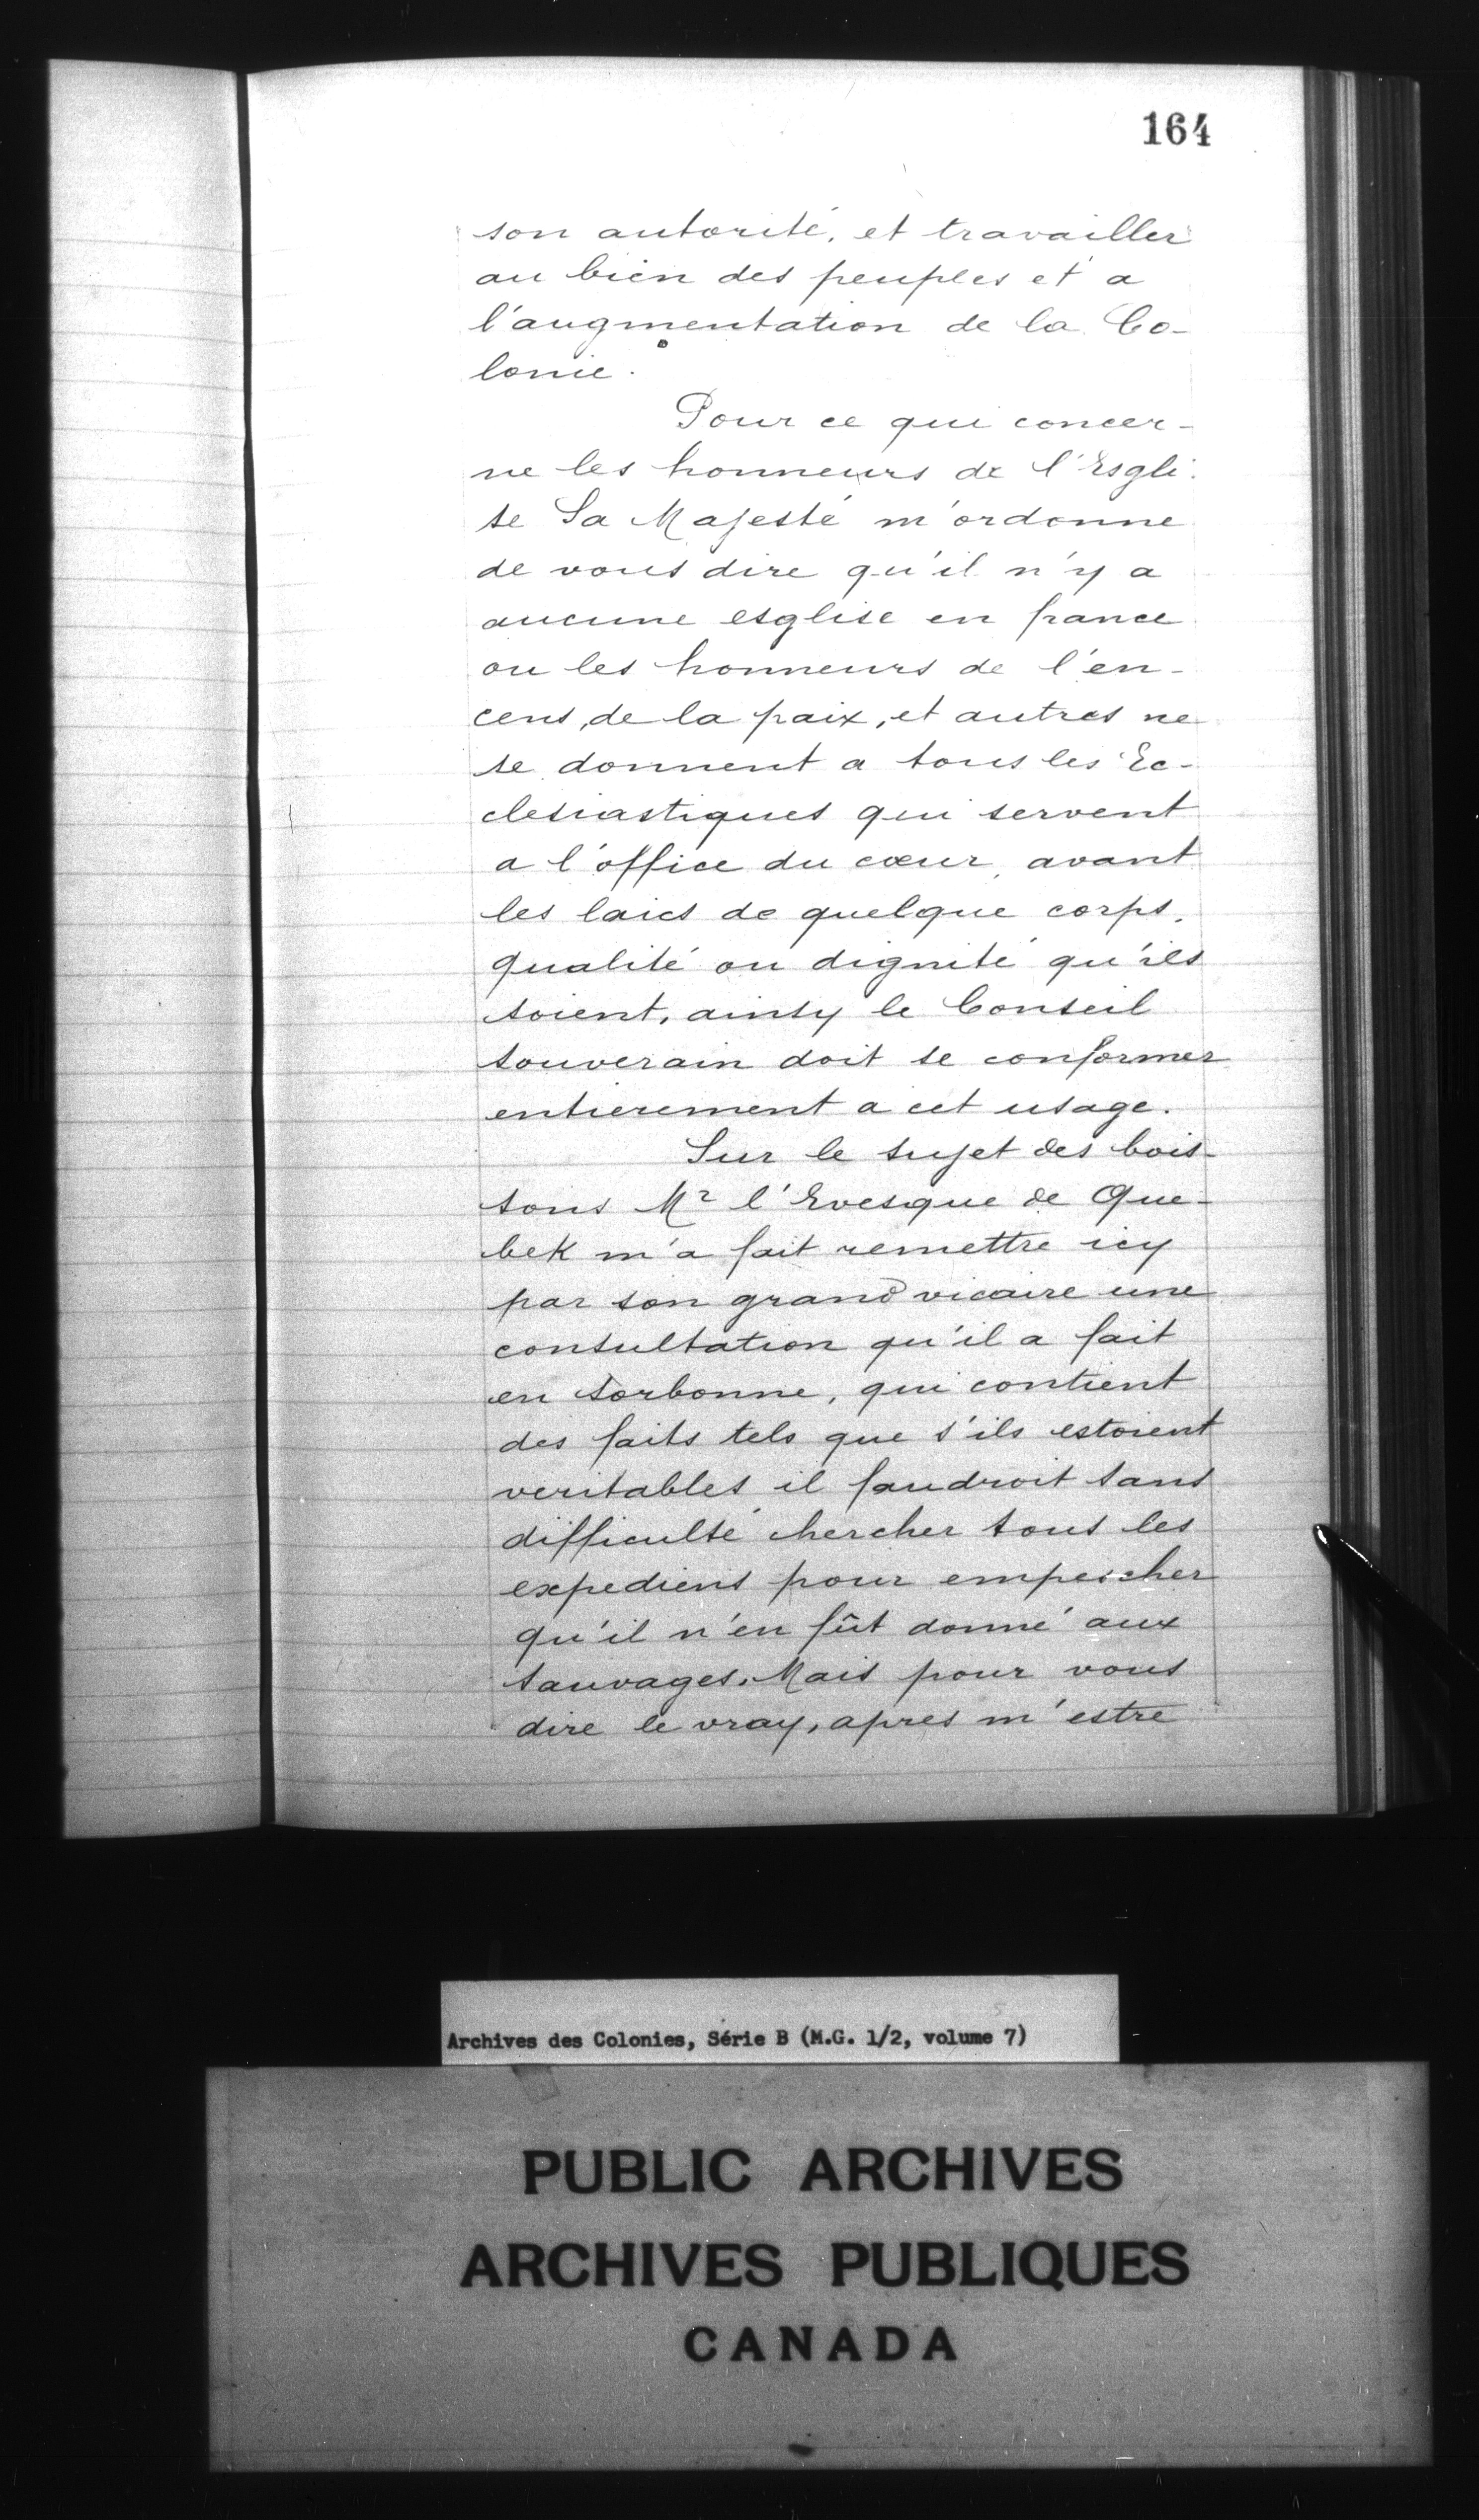 164
son autorité, et travailler
au bien des peuples et a
l'augmentation de la Co-
lonie.
Pour ce qui concer-
ne les honneurs de l'Esgli-
se Sa Majesté m'ordonne
de vous dire qu'il n'y a
aucune esglise en france
ou les honneurs de l'en-
cens, de la paix, et autres ne
se donnent a tous les Ec-
clesiastiques qui servent
a l'office du cœur, avant
les laics de quelque corps,
qualité ou dignité qu'ils
soient, ainsy le Conseil
souverain doit se conformer
entierement a cet usage.
Sur le sujet des bois-
sons Mr l'Evesque de Que-
bek m'a fait remettre icy
par son grand vicaire une
consultation qu'il a fait
en Sorbonne, qui contient
des faits tels que s'ils estoient
veritables il faudroit sans
difficulté chercher tous les
expediens pour empescher
qu'il n'en fût donné aux
sauvages. Mais pour vous
dire le vray, apres m'estre
Archives des Colonies, Série B (M.G. 1/2, volume 7)
5
PUBLIC ARCHIVES
ARCHIVES PUBLIQUES
CANADA